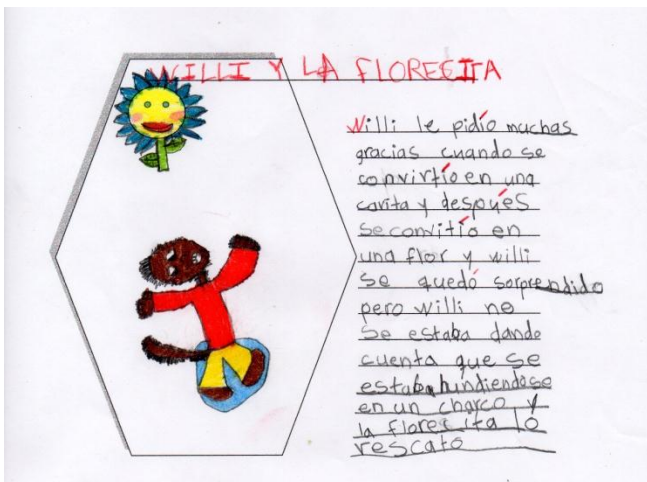 WILLI Y LA FLORECITA
Willi le pidío muchas
gracias cuando se
convirtío en una
carita y despúes
se convitío en
una flor y willi
se quedó sorprendido
pero willi no
se estaba dando
cuenta que se
estaba hundiendose
en un charco y
la florecita lo
rescato